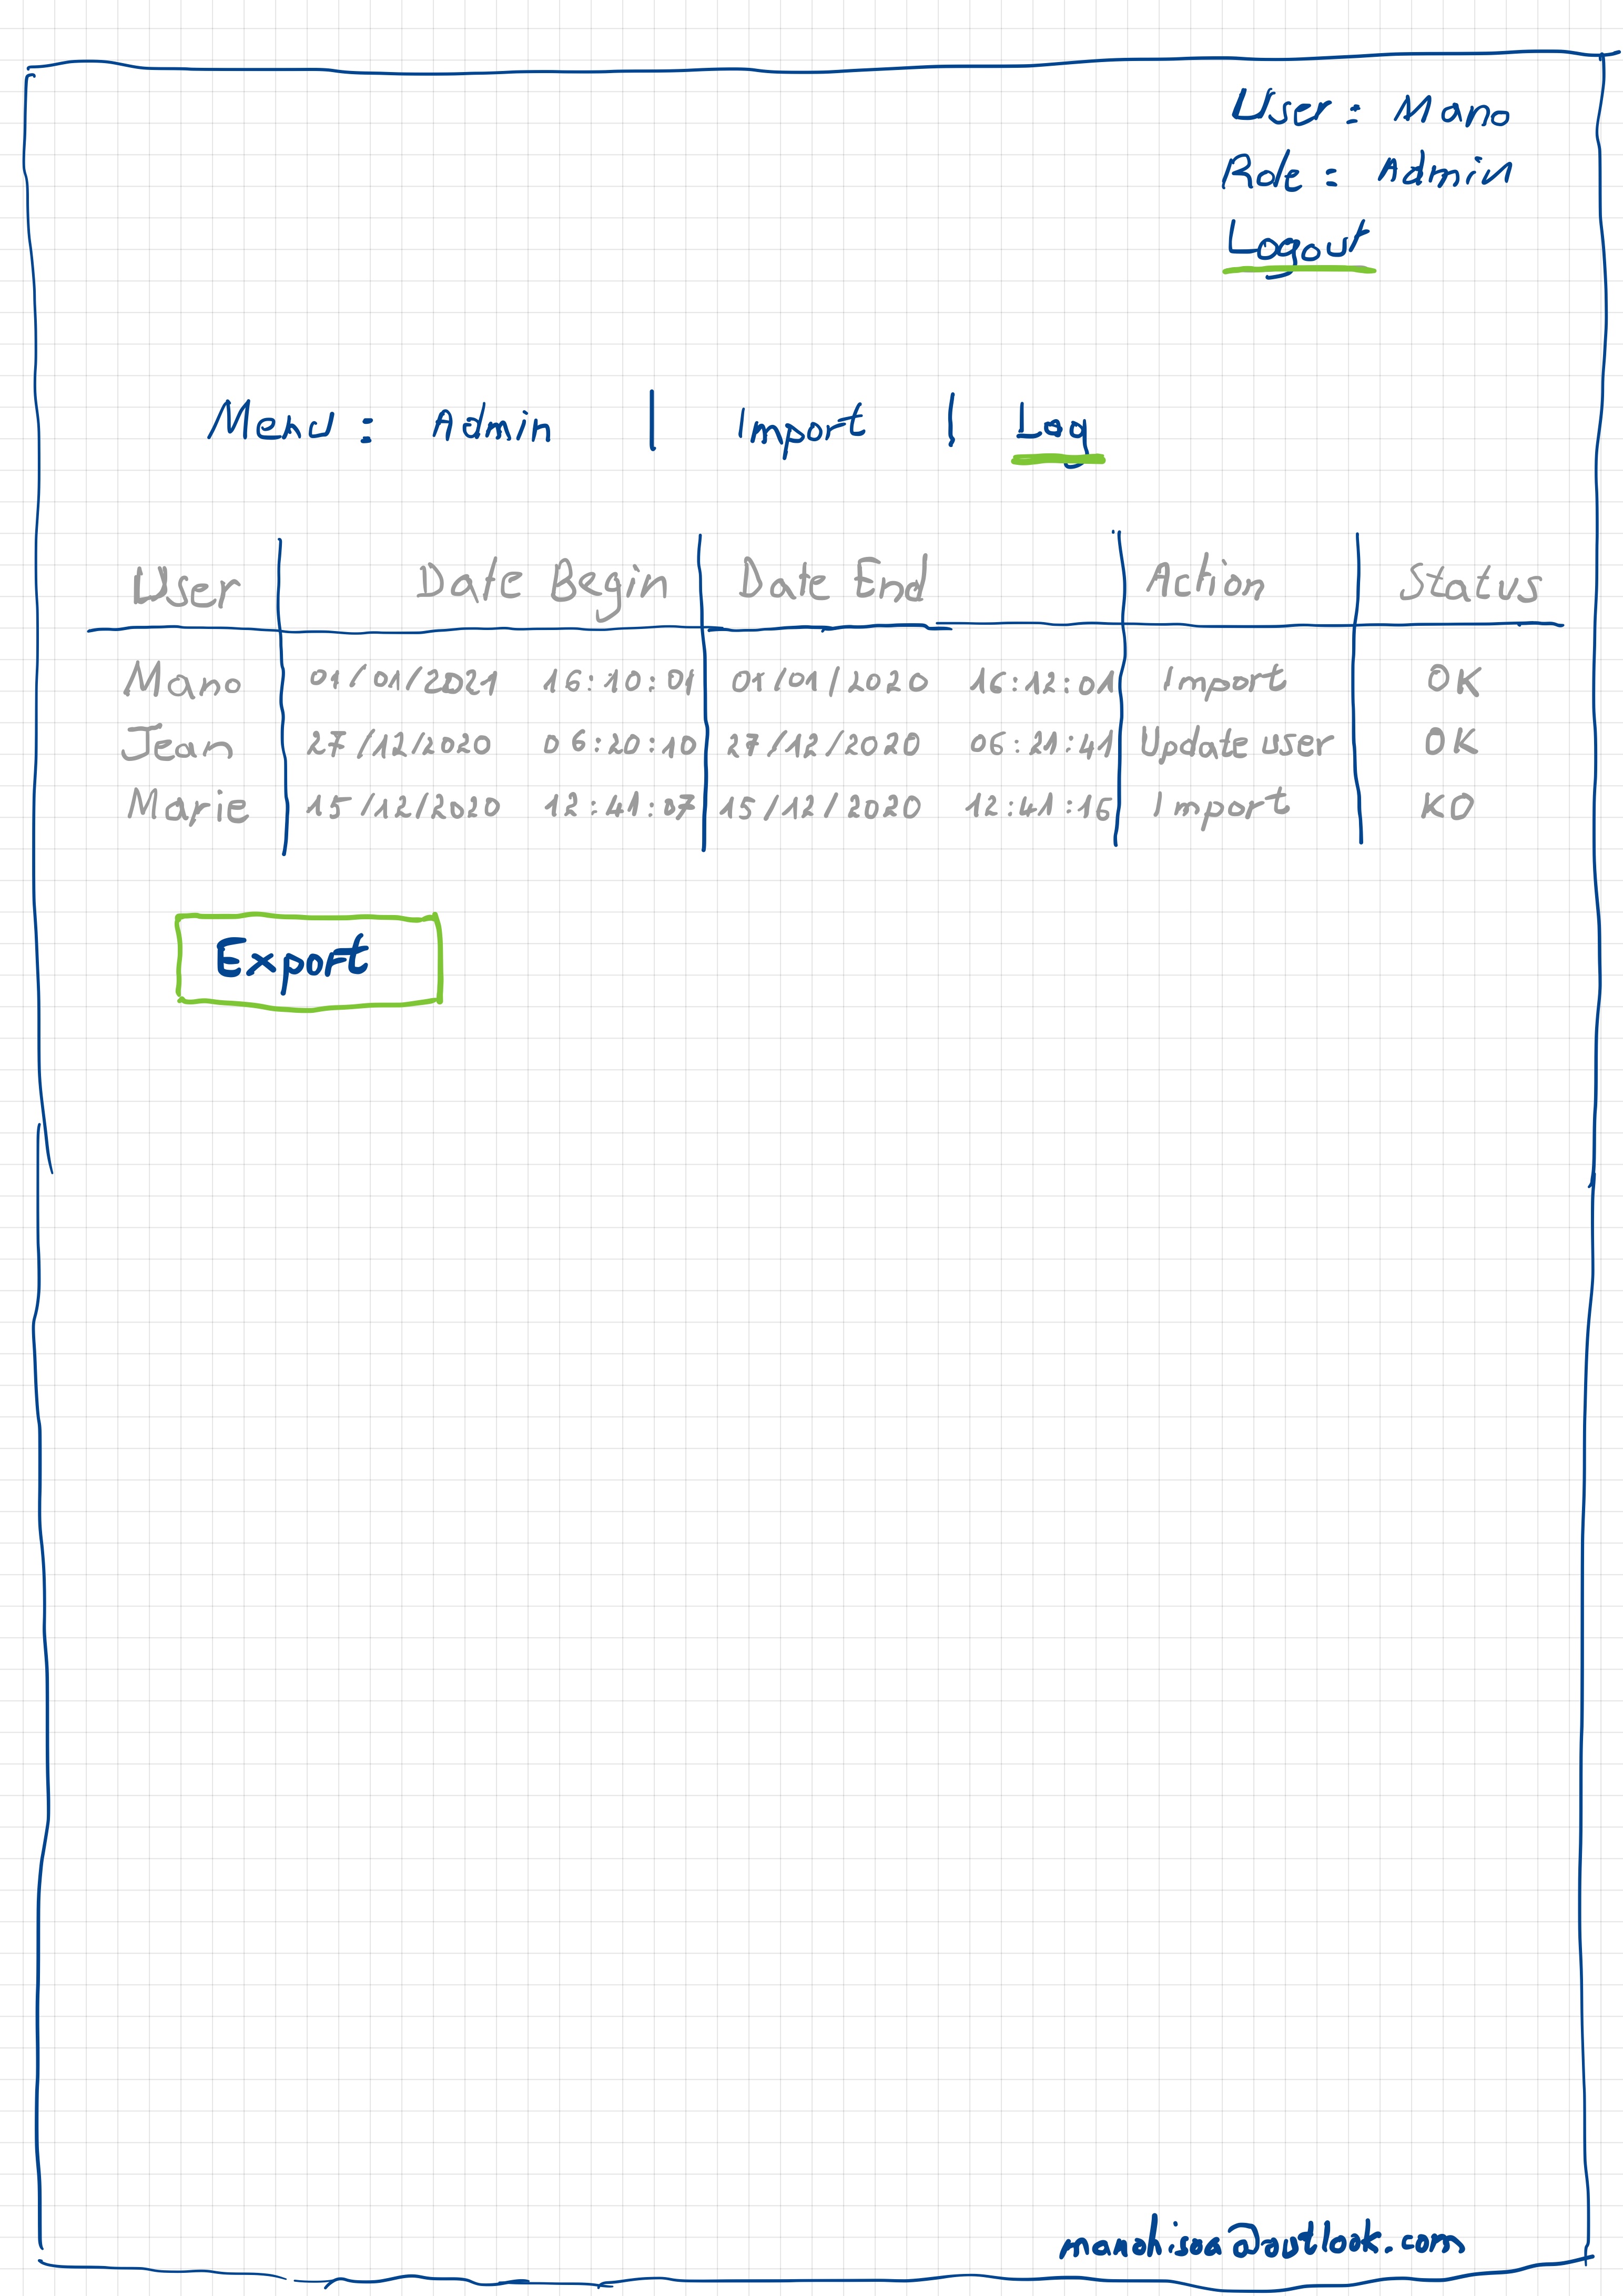 User : Mano
Role : Admin
Logout
Menu : Admin | Import | Log
User Date Begin Date End Action Status
Mano 01/01/2021 16:10:01 01/01/2020 16:12:01 Import OK
Jean 27/12/2020 06:20:10 27/12/2020 06:21:41 Update user OK
Marie 15/12/2020 12:41:07 15/12/2020 12:41:16 Import KO
Export
manohisoa@outlook.com